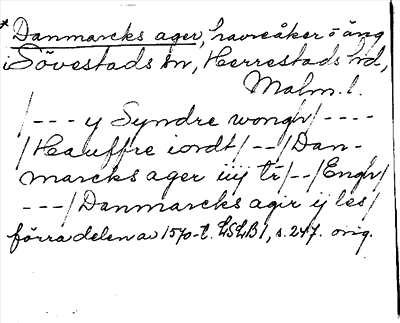 * Danmarcks ager, havreåker o äng
i Sövestads sn, Herrestads hd,
Malm. l.
/--- y Syndre wongh/----
/Hauffre iordt/--/Dan-
marcks ager iiij tr/--/Engh/
---/Danmarcks agir ij les/
förra delen av 1570-t. LSLB 1, s. 247. orig.